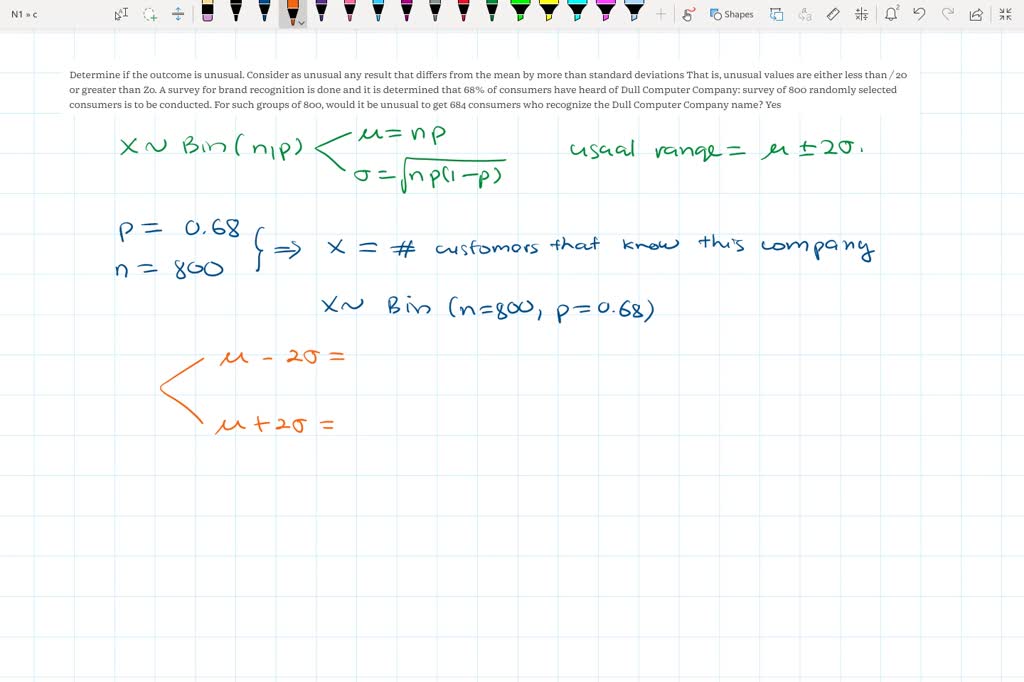 N1 » c
Shapes
2
Determine if the outcome is unusual. Consider as unusual any result that differs from the mean by more than standard deviations That is, unusual values are either less than / 20
or greater than Zo. A survey for brand recognition is done and it is determined that 68% of consumers have heard of Dull Computer Company: survey of 800 randomly selected
consumers is to be conducted. For such groups of 800, would it be unusual to get 684 consumers who recognize the Dull Computer Company name? Yes
X ~ Bin(n,p) < μ = np
σ = √np(1-p)
usual range = μ ± 2σ.
p = 0.68
n = 800
} ⇒ X = # customers that know this company
X ~ Bin (n=800, p=0.68)
μ - 2σ =
μ + 2σ =